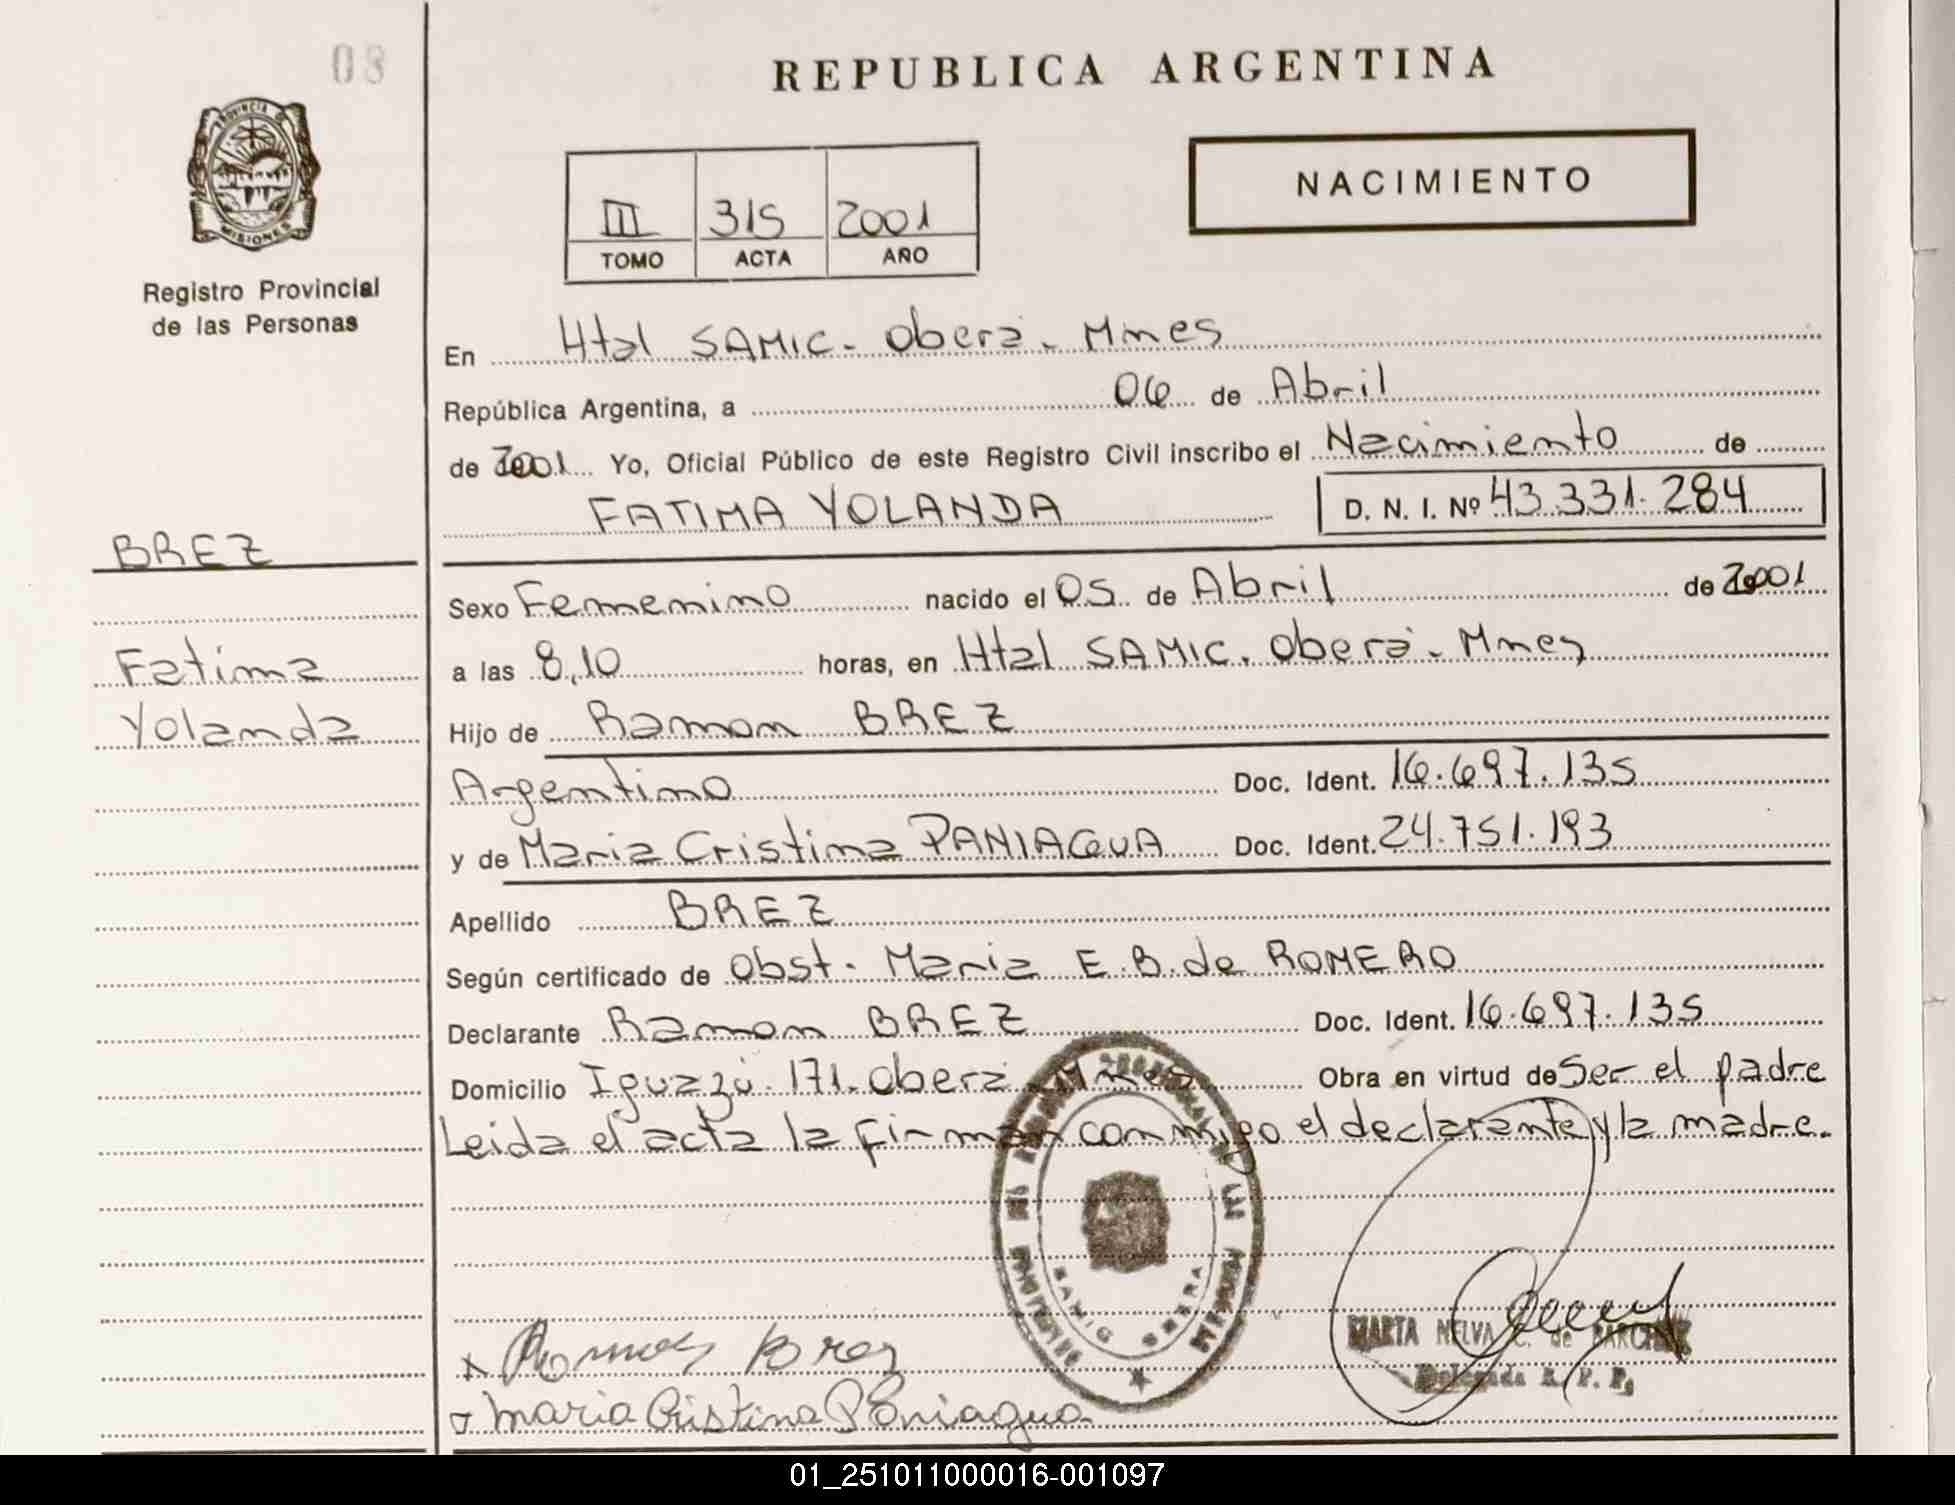 08
REPUBLICA ARGENTINA
PROVINCIA DE
MISIONES
Registro Provincial
de las Personas
III 315 2001
TOMO ACTA AÑO
NACIMIENTO
En Htal SAMIC. Oberá. Mnes
República Argentina, a 06 de Abril
de 2001 Yo, Oficial Público de este Registro Civil inscribo el Nacimiento de
FATIMA YOLANDA D. N. I. Nº 43.331.284
BREZ
Fatima
Yolanda
Sexo Femenino nacido el 05 de Abril de 2001
a las 8,10 horas, en Htal SAMIC. Oberá. Mnes
Hijo de Ramon BREZ
Argentino Doc. Ident. 16.697.135
y de Maria Cristina PANIAGUA Doc. Ident. 24.751.193
Apellido BREZ
Según certificado de Obst. Maria E.B. de ROMERO
Declarante Ramon BREZ Doc. Ident. 16.697.135
Domicilio Iguazú. 171. Oberá. Mnes Obra en virtud de Ser el padre
Leida el acta la firman conmigo el declarante y la madre.
MARTA NELVA C. de
Delegada R. P. P.
Ramon Brez
Maria Cristina Paniagua
01_251011000016-001097